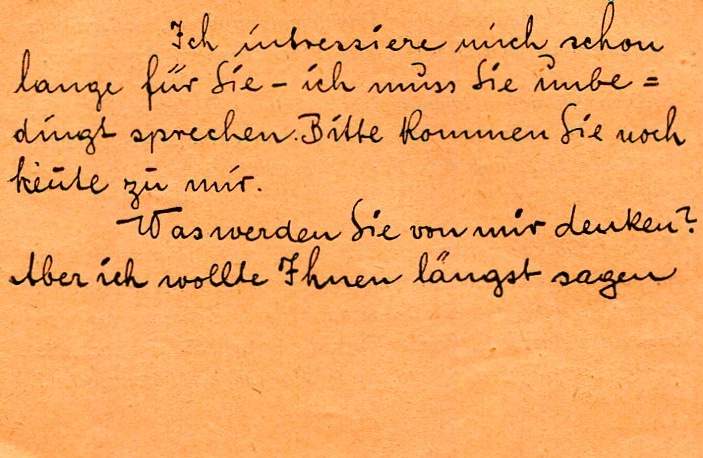 Ich intressiere mich schon
lange für Sie - ich muss Sie unbe=
dingt sprechen. Bitte kommen Sie noch
heute zu mir.
Was werden Sie von mir denken?
Aber ich wollte Ihnen längst sagen